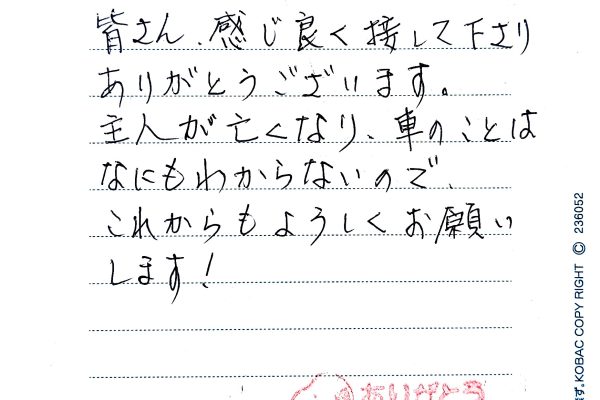 皆さん、感じ良く接して下さり
ありがとうございます。
主人が亡くなり、車のことは
なにもわからないので、
これからもようしくお願い
します!
ありがとう
す。KOBAC COPY RIGHT © 236052